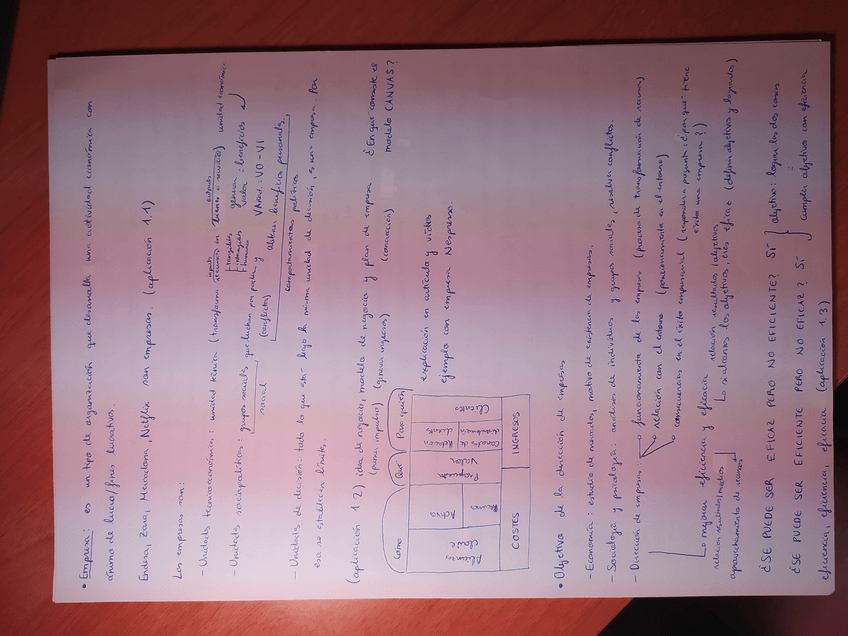 • Empresa: es un tipo de organización que desarrolla una actividad económica con
ánimo de lucro/fines lucrativos.
Endesa, Zara, Mercadona, Netflix son empresas. (aplicación 1.1)
Las empresas son:
inputs outputs
- Unidades tecnoeconómicas: unidad técnica (transforma recursos en bienes o servicios) unidad económica:
tangibles
intangibles
humanos
generan
valor = beneficios
VAbruto: VO - VI
- Unidades sociopolíticas: grupos sociales que luchan por poder y obtienen beneficios personales,
social (conflictos) comportamientos políticos
- Unidades de decisión: todo lo que está bajo la misma unidad de decisión, es una empresa. Por
eso se establecen límites.
(aplicación 1.2) idea de negocio, modelo de negocio y plan de empresa ¿En qué consiste el
(primer impulso) (generar ingresos) (concreción) modelo CANVAS?
Cómo Qué Para quién
Alianzas Clave
Propuesta Valor
Relación clientes
Canales de distribución
Clientes
COSTES INGRESOS
explicación en artículo y vídeos
ejemplo con empresa Nespresso.
• Objetivo de la dirección de empresas
- Economía: estudio de mercados, motivo de existencia de empresas.
- Sociología y psicología: analizan de individuos y grupos sociales, resolver conflictos.
- Dirección de empresas: funcionamiento de las empresas (proceso de transformación de recursos)
relación con el entorno (posicionamiento en el entorno)
consecuencias en el éxito empresarial (responder a pregunta: ¿por qué tiene
éxito una empresa?)
mejorar eficiencia y eficacia relación resultados/objetivos
relación resultados/medios si alcanzas los objetivos, eres eficaz (definir objetivos y lograrlos)
aprovechamiento de recursos
¿SE PUEDE SER EFICAZ PERO NO EFICIENTE? SÍ objetivo: lograr los dos casos
¿SE PUEDE SER EFICIENTE PERO NO EFICAZ? SÍ cumplir objetivo con eficiencia
eficiencia, eficiencia, eficacia (aplicación 1.3)